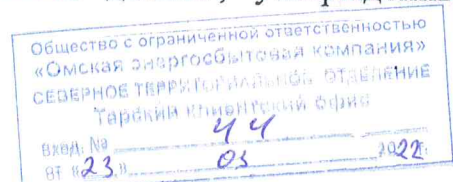 Общество с ограниченной ответственностью
«Омская энергосбытовая компания»
СЕВЕРНОЕ ТЕРРИТОРИАЛЬНОЕ ОТДЕЛЕНИЕ
Тарский клиентский офис
Вход. № 44
от "23" 03 2022г.